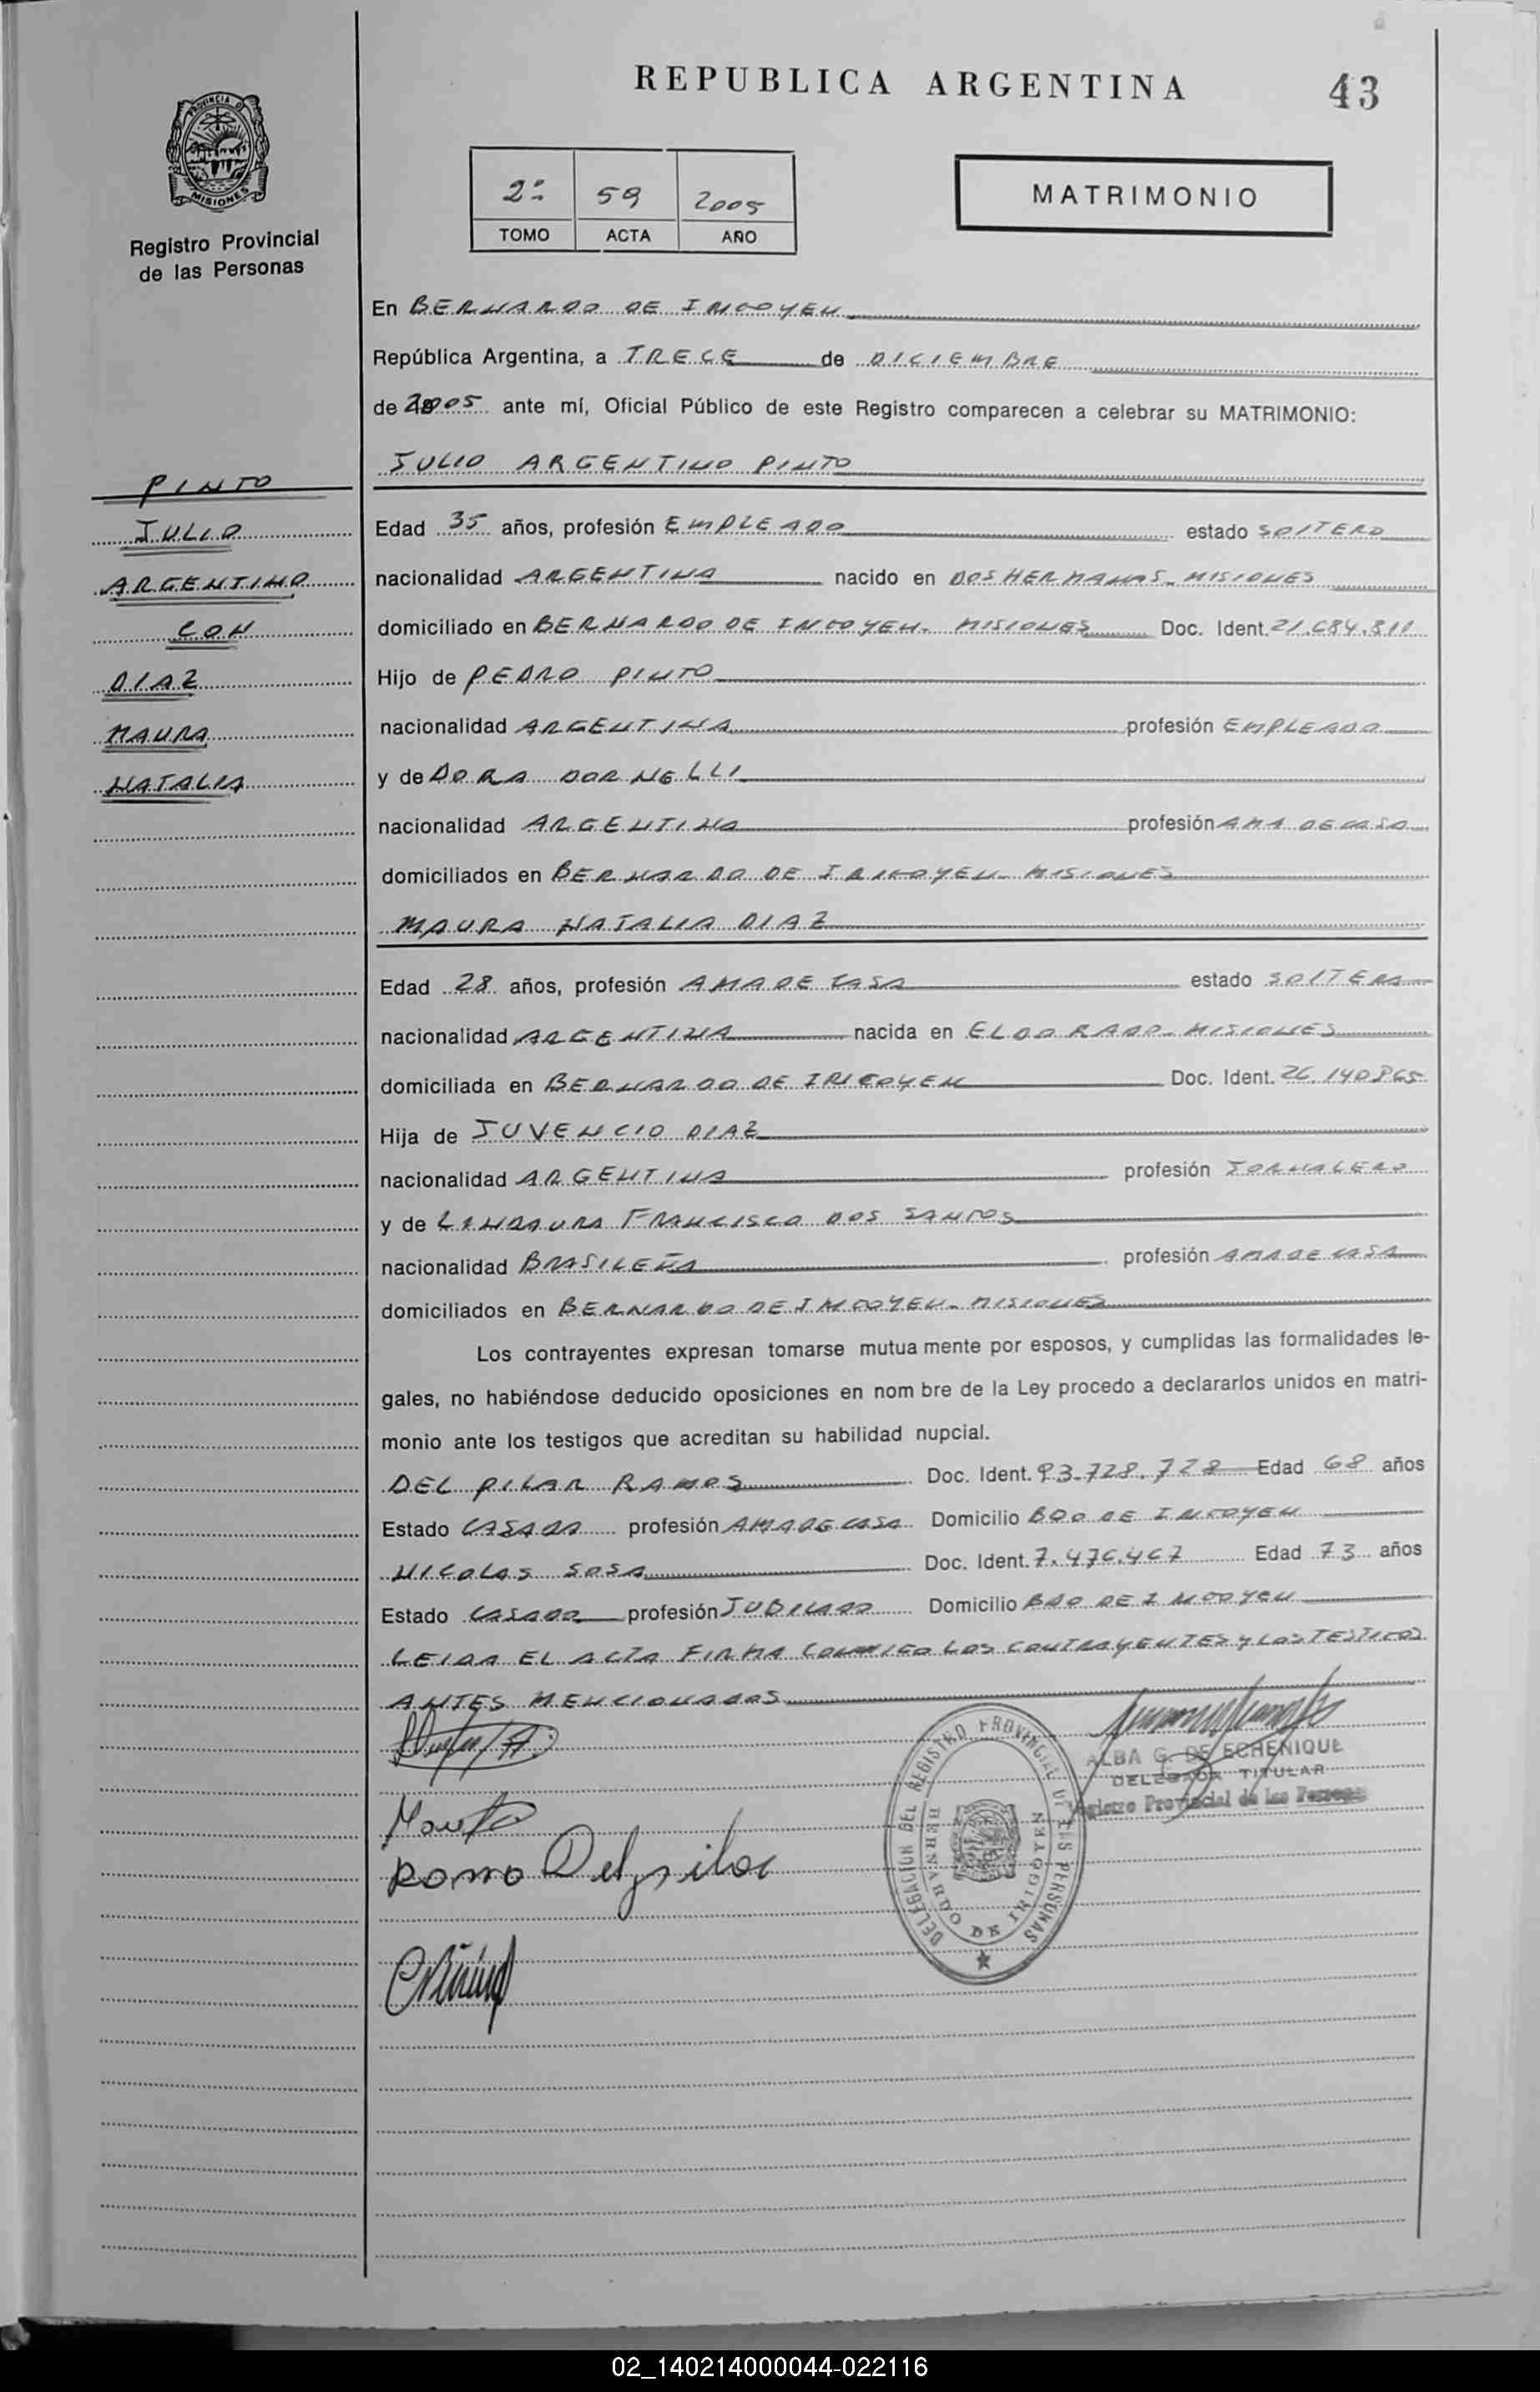 REPUBLICA ARGENTINA 43
PROVINCIA DE MISIONES
Registro Provincial
de las Personas
2º 59 2005
TOMO ACTA AÑO
MATRIMONIO
En BERNARDO DE IRIGOYEN
República Argentina, a TRECE de DICIEMBRE
de 2005 ante mí, Oficial Público de este Registro comparecen a celebrar su MATRIMONIO:
JULIO ARGENTINO PINTO
PINTO
JULIO
ARGENTINO
CON
DIAZ
MAURA
NATALIA
Edad 35 años, profesión EMPLEADO estado SOLTERO
nacionalidad ARGENTINA nacido en DOS HERMANAS - MISIONES
domiciliado en BERNARDO DE IRIGOYEN - MISIONES Doc. Ident. 21.684.811
Hijo de PEDRO PINTO
nacionalidad ARGENTINA profesión EMPLEADO
y de DORA DORNELLI
nacionalidad ARGENTINA profesión AMA DE CASA
domiciliados en BERNARDO DE IRIGOYEN - MISIONES
MAURA NATALIA DIAZ
Edad 28 años, profesión AMA DE CASA estado SOLTERA
nacionalidad ARGENTINA nacida en ELDORADO - MISIONES
domiciliada en BERNARDO DE IRIGOYEN Doc. Ident. 26.140865
Hija de JUVENCIO DIAZ
nacionalidad ARGENTINA profesión JORNALERO
y de LINDAURA FRANCISCA DOS SANTOS
nacionalidad BRASILEÑA profesión AMA DE CASA
domiciliados en BERNARDO DE IRIGOYEN - MISIONES
Los contrayentes expresan tomarse mutua mente por esposos, y cumplidas las formalidades le-
gales, no habiéndose deducido oposiciones en nom bre de la Ley procedo a declararlos unidos en matri-
monio ante los testigos que acreditan su habilidad nupcial.
DEL PILAR RAMOS Doc. Ident. 93.728.728 Edad 68 años
Estado CASADA profesión AMA DE CASA Domicilio BDO DE IRIGOYEN
NICOLAS SOSA Doc. Ident. 7.476.467 Edad 73 años
Estado CASADO profesión JUBILADO Domicilio BDO DE IRIGOYEN
LEIDA EL ACTA FIRMA CONMIGO LOS CONTRAYENTES Y LOS TESTIGOS
ANTES MENCIONADOS
ALBA G. DE ECHENIQUE
DELEGADA TITULAR
Registro Provincial de las Personas
DELEGACION DEL REGISTRO PROVINCIAL DE LAS PERSONAS
BERNARDO DE IRIGOYEN
Romo Del pilar
02_140214000044-022116